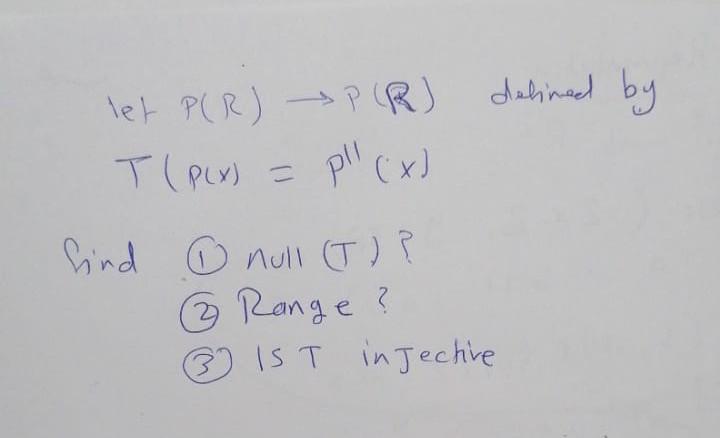 let P(R) → P(R) defined by
T(p(x) = p''(x)
find ① null (T) ?
② Range ?
③ IS T injective